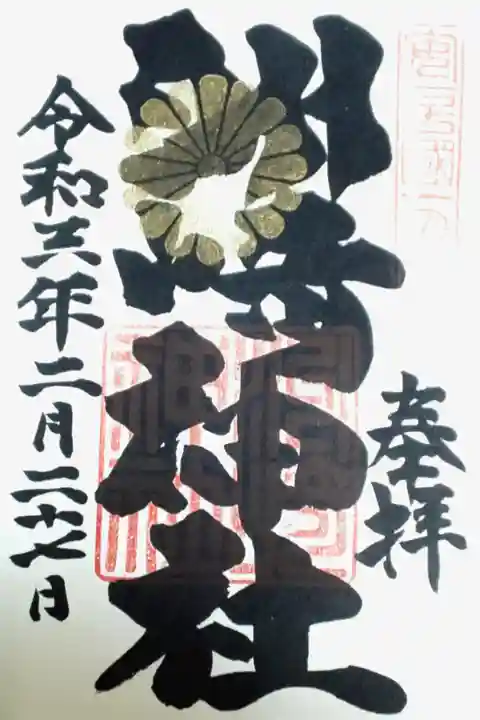 奉拝
洲崎神社
令和三年二月二十七日